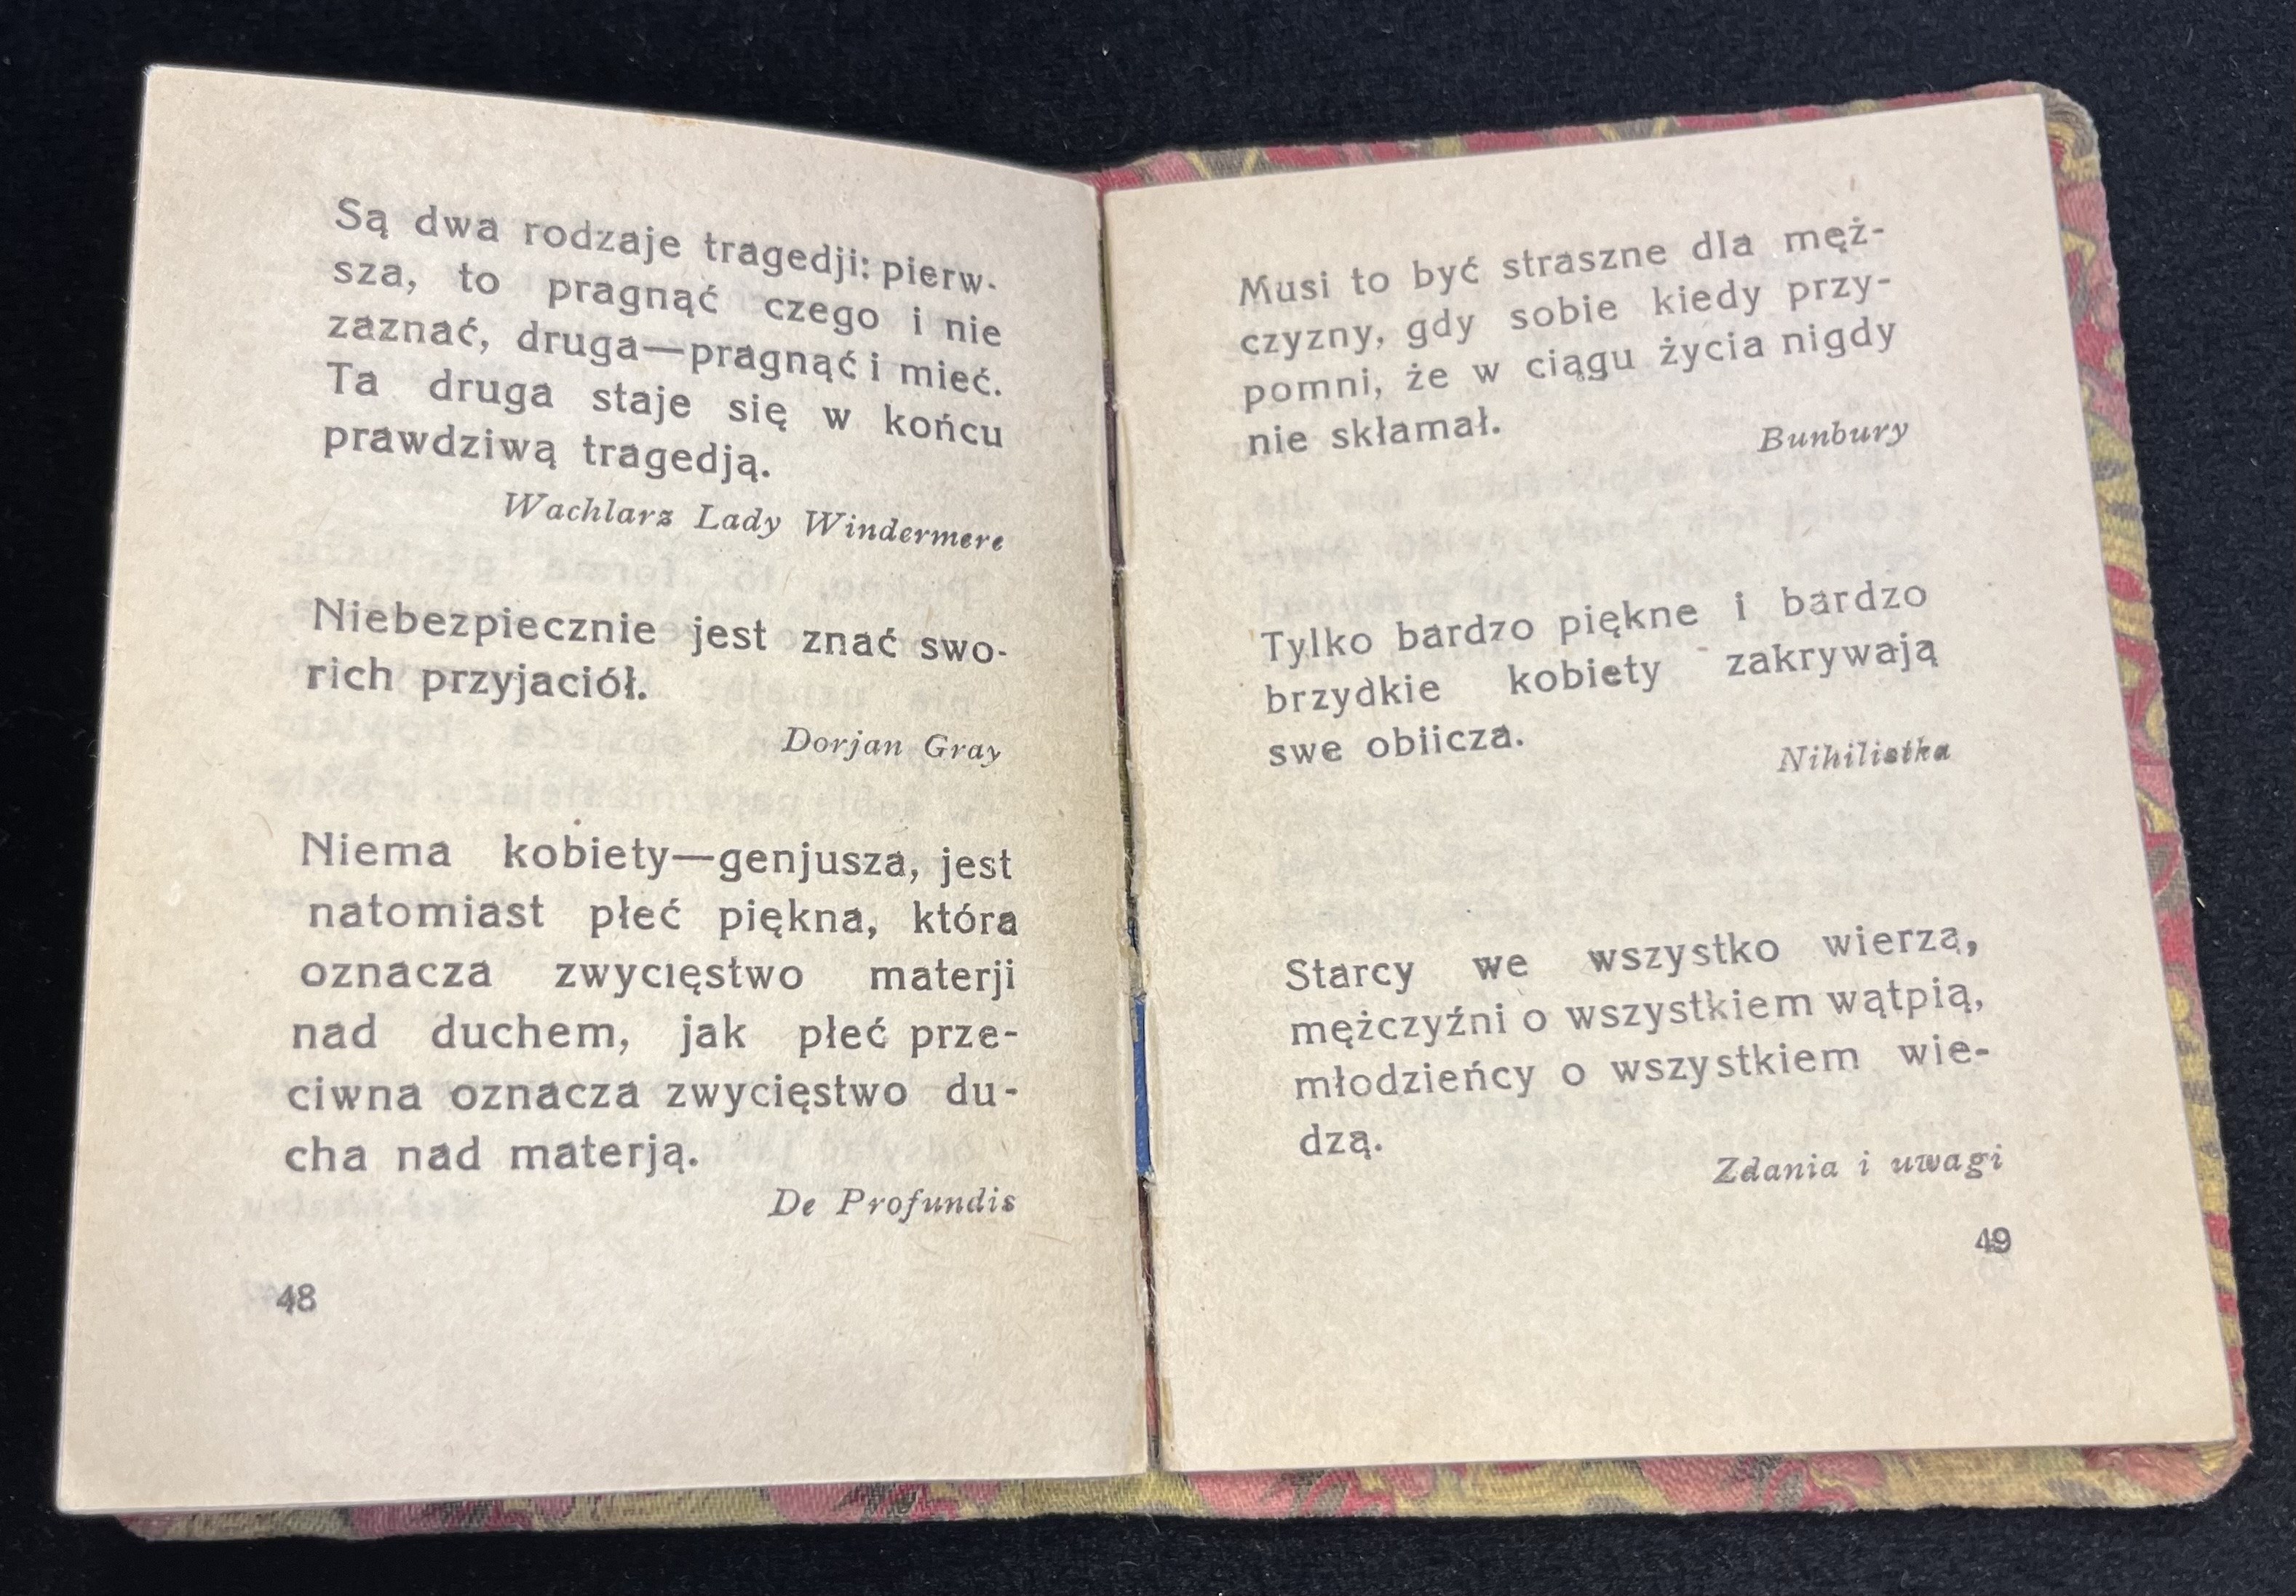 Są dwa rodzaje tragedji: pierw-
sza, to pragnąć czego i nie
zaznać, druga—pragnąć i mieć.
Ta druga staje się w końcu
prawdziwą tragedją.
Wachlarz Lady Windermere
Niebezpiecznie jest znać swo-
rich przyjaciół.
Dorjan Gray
Niema kobiety—genjusza, jest
natomiast płeć piękna, która
oznacza zwycięstwo materji
nad duchem, jak płeć prze-
ciwna oznacza zwycięstwo du-
cha nad materją.
De Profundis
48
Musi to być straszne dla męż-
czyzny, gdy sobie kiedy przy-
pomni, że w ciągu życia nigdy
nie skłamał.
Bunbury
Tylko bardzo piękne i bardzo
brzydkie kobiety zakrywają
swe obiicza.
Nihilistka
Starcy we wszystko wierzą,
mężczyźni o wszystkiem wątpią,
młodzieńcy o wszystkiem wie-
dzą.
Zdania i uwagi
49